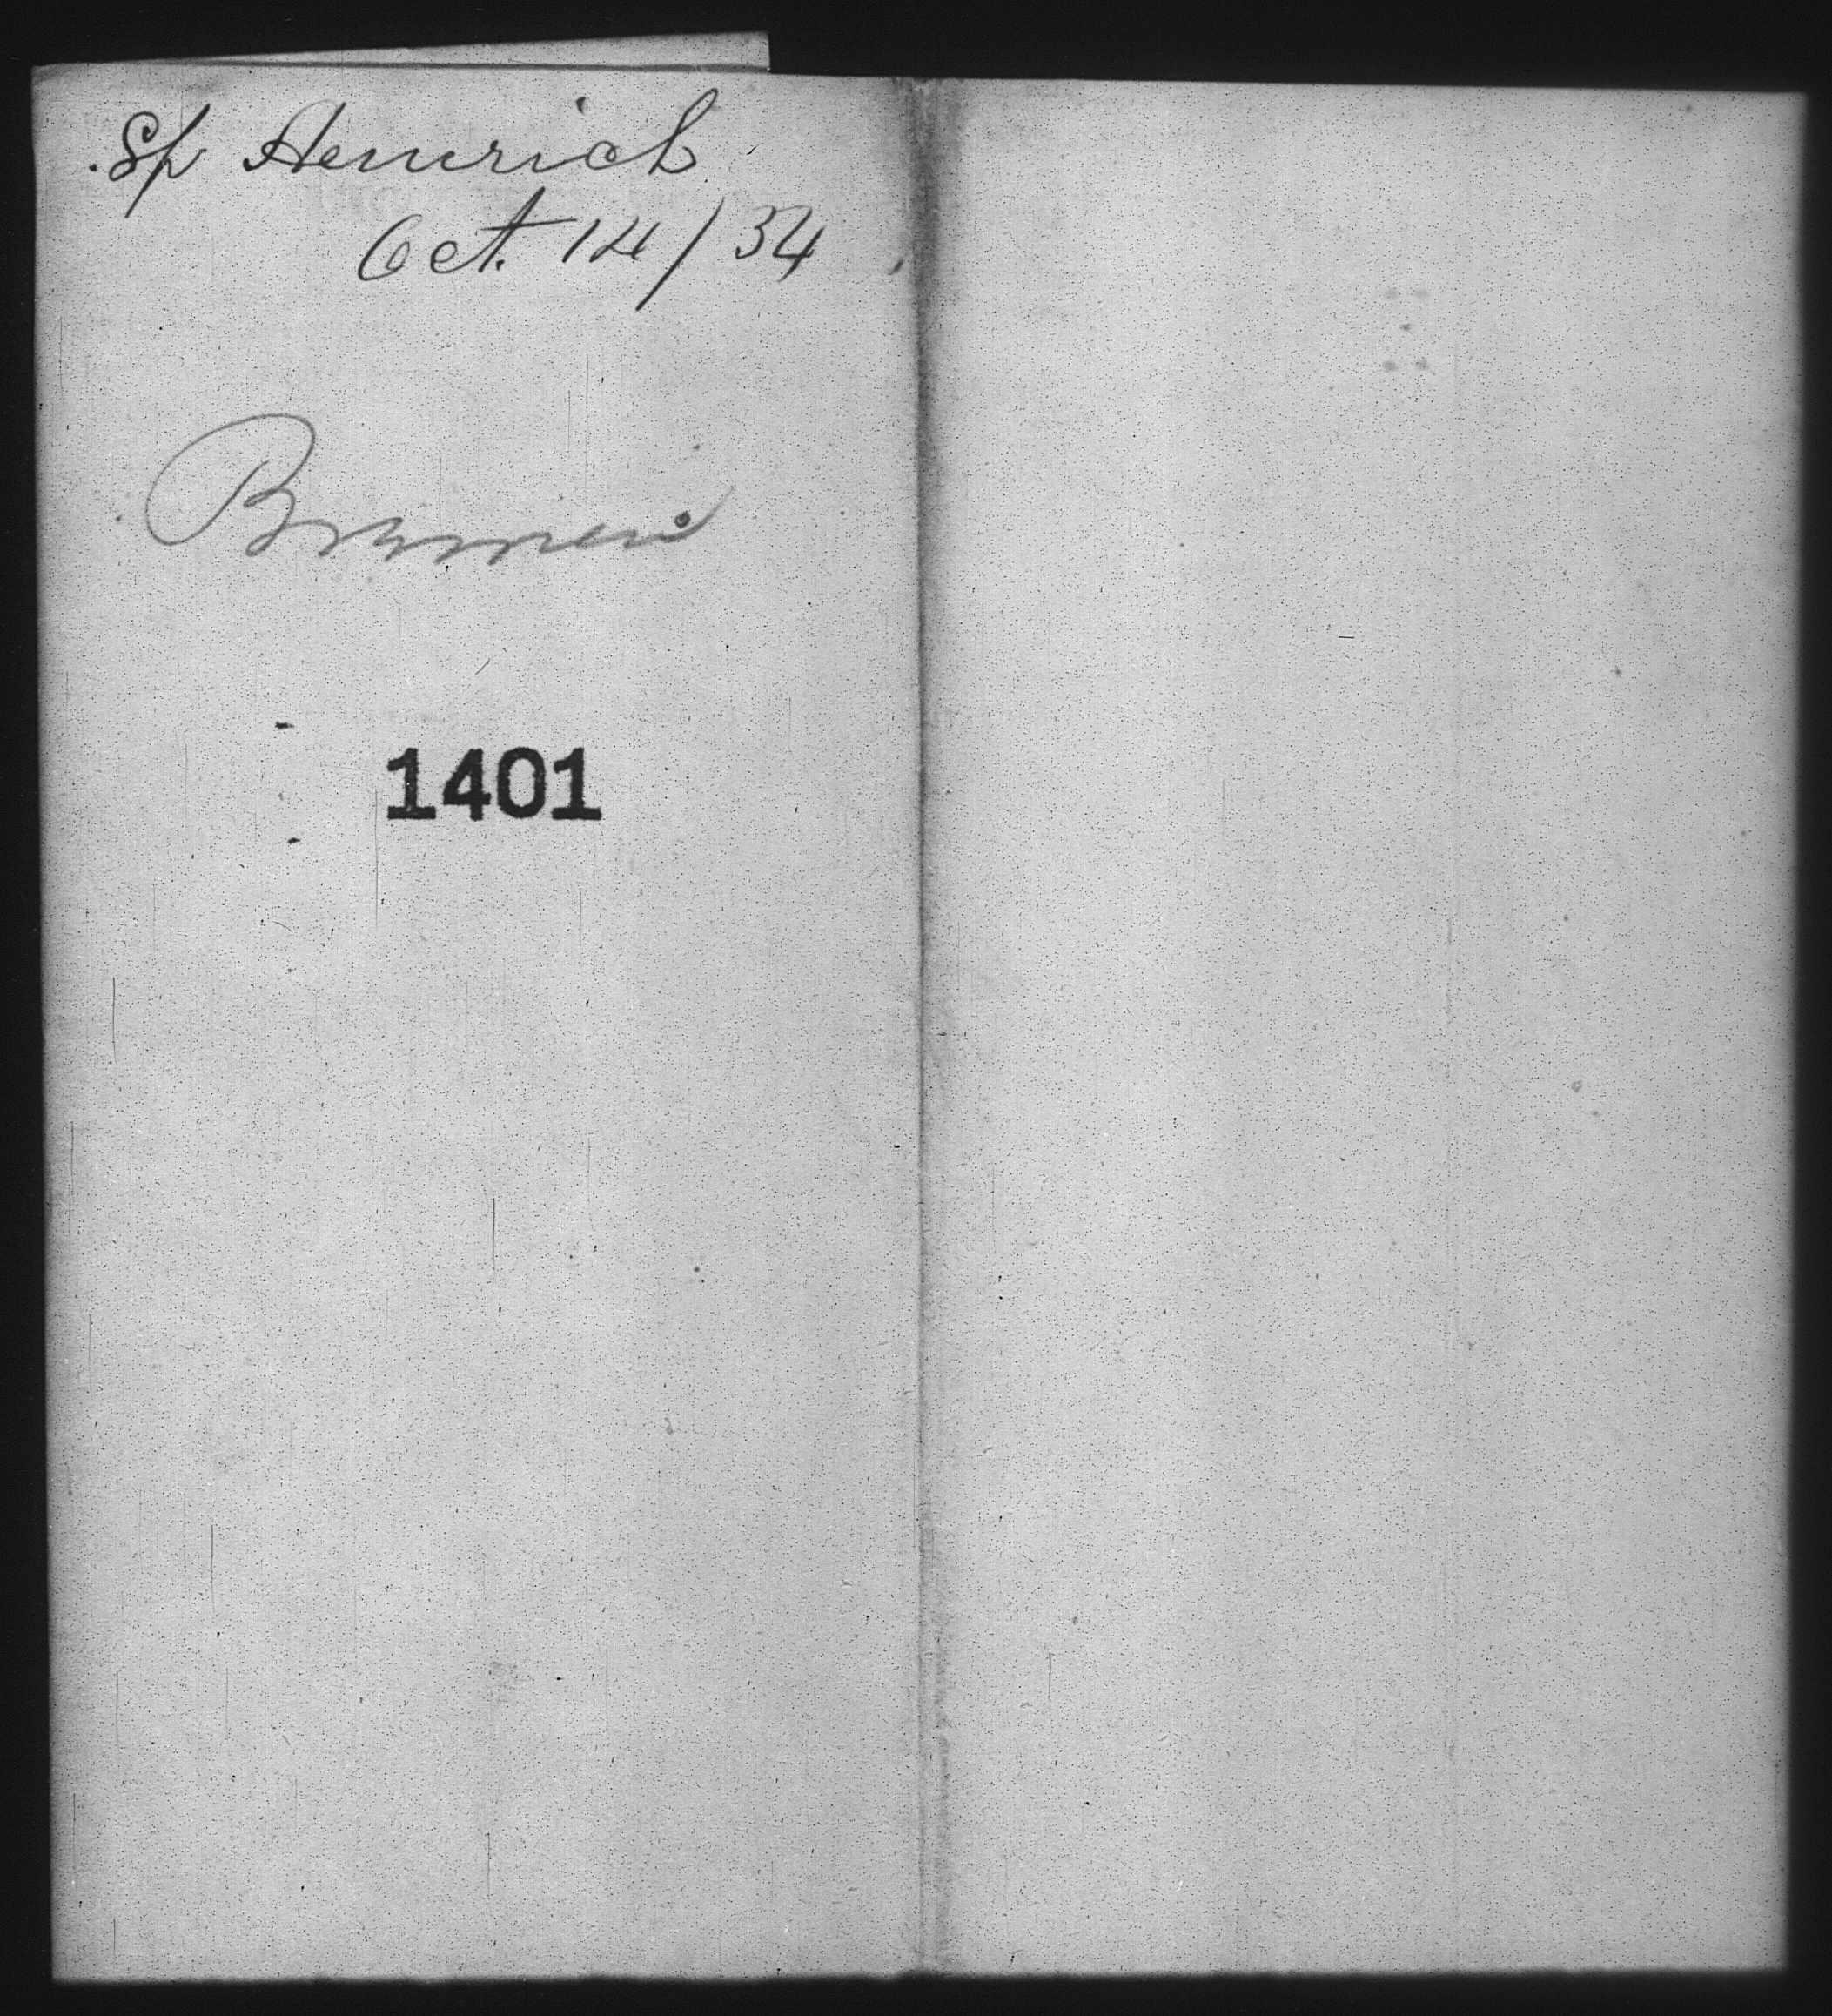 Sp Heinrich
Oct. 14/34
Bremen
1401